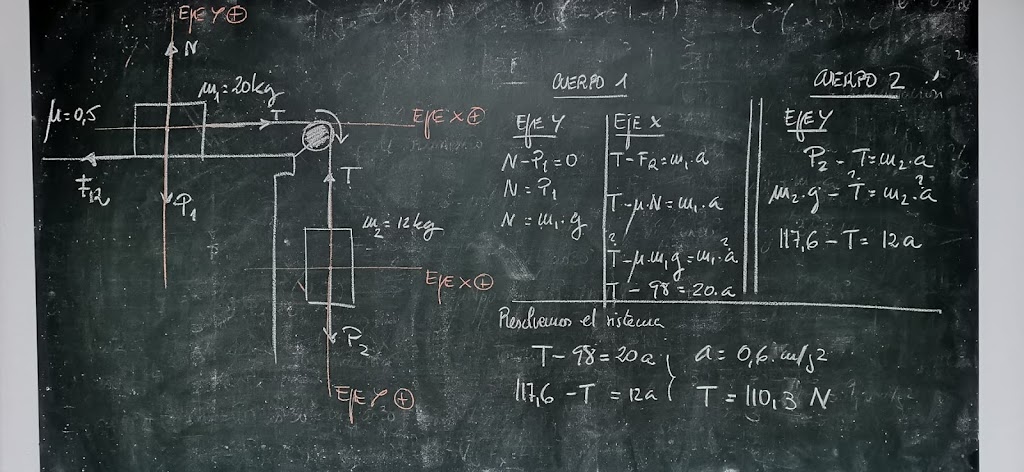 EJE Y ⊕
N
m₁=20kg
T
μ=0,5
EJE X ⊕
FR
P₁
T
m₂=12kg
EJE X ⊕
P₂
EJE Y ⊕
CUERPO 1
EJE Y
N-P₁=0
N=P₁
N=m₁·g
EJE X
T-FR=m₁·a
T-μ·N=m₁·a
? ?
T-μ·m₁g=m₁·a
T-98=20·a
CUERPO 2
EJE Y
P₂-T=m₂·a
? ?
m₂·g-T=m₂·a
117,6-T=12a
Resolvemos el sistema
T-98=20a
117,6-T=12a
a=0,6 m/s2
T=110,3 N